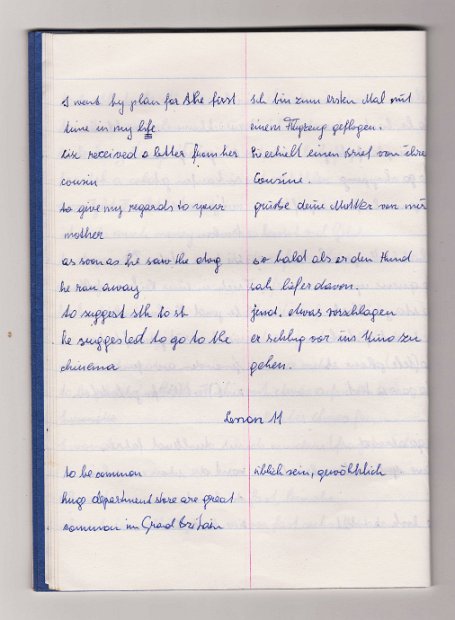 I went by plan for the first
time in my life
Liz received a letter from her
cousin
to give my regards to your
mother
as soon as he saw the dog
he ran away
to suggest sth to st
he suggested to go to the
chinema
Ich bin zum ersten Mal mit
einem Flugzeug geflogen.
erhielt einen Brief von ihre
Cousine.
grüße deine Mutter von mir
so bald als er den Hund
sah lief er davon.
jmd. etwas vorschlagen
er schlug vor ins Kino zu
gehen.
Lesson 11
to be common
huge department store are great
common in Grad Britain
üblich sein, gewöhnlich